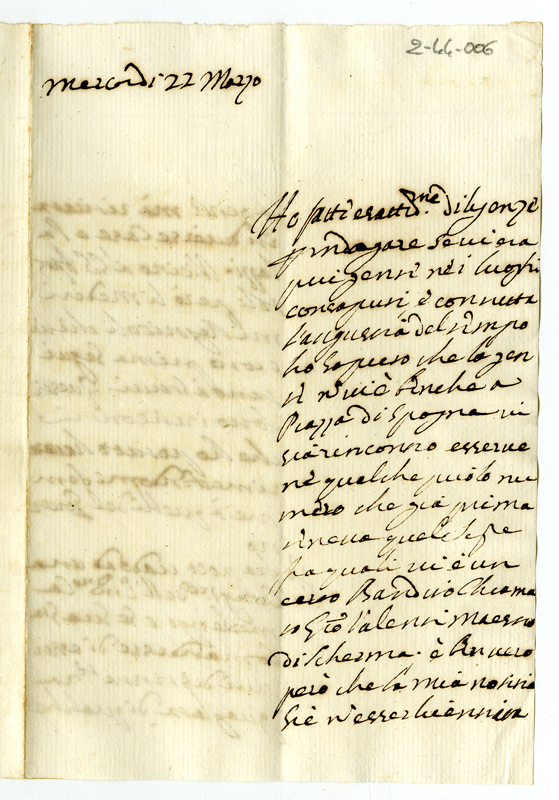 2-44-006
Mercordì 22 Marzo
Ho fatti esattis.me diligenze
indagare se vi era
più gensi nè i luoghi
consaputi è con tutta
l'angustia del tempo
ho saputo che la gen
te n'vi è benche a
Piazza di Spagna vi
sia rincontro esserve
ne qualche piciolo nu
mero che già prima
teneva quele se
fra quali vi è un
certo Bandito chiama
to Valenti Maestro
di scherma. è ben vero
però che la mia notitia
si è n'esser